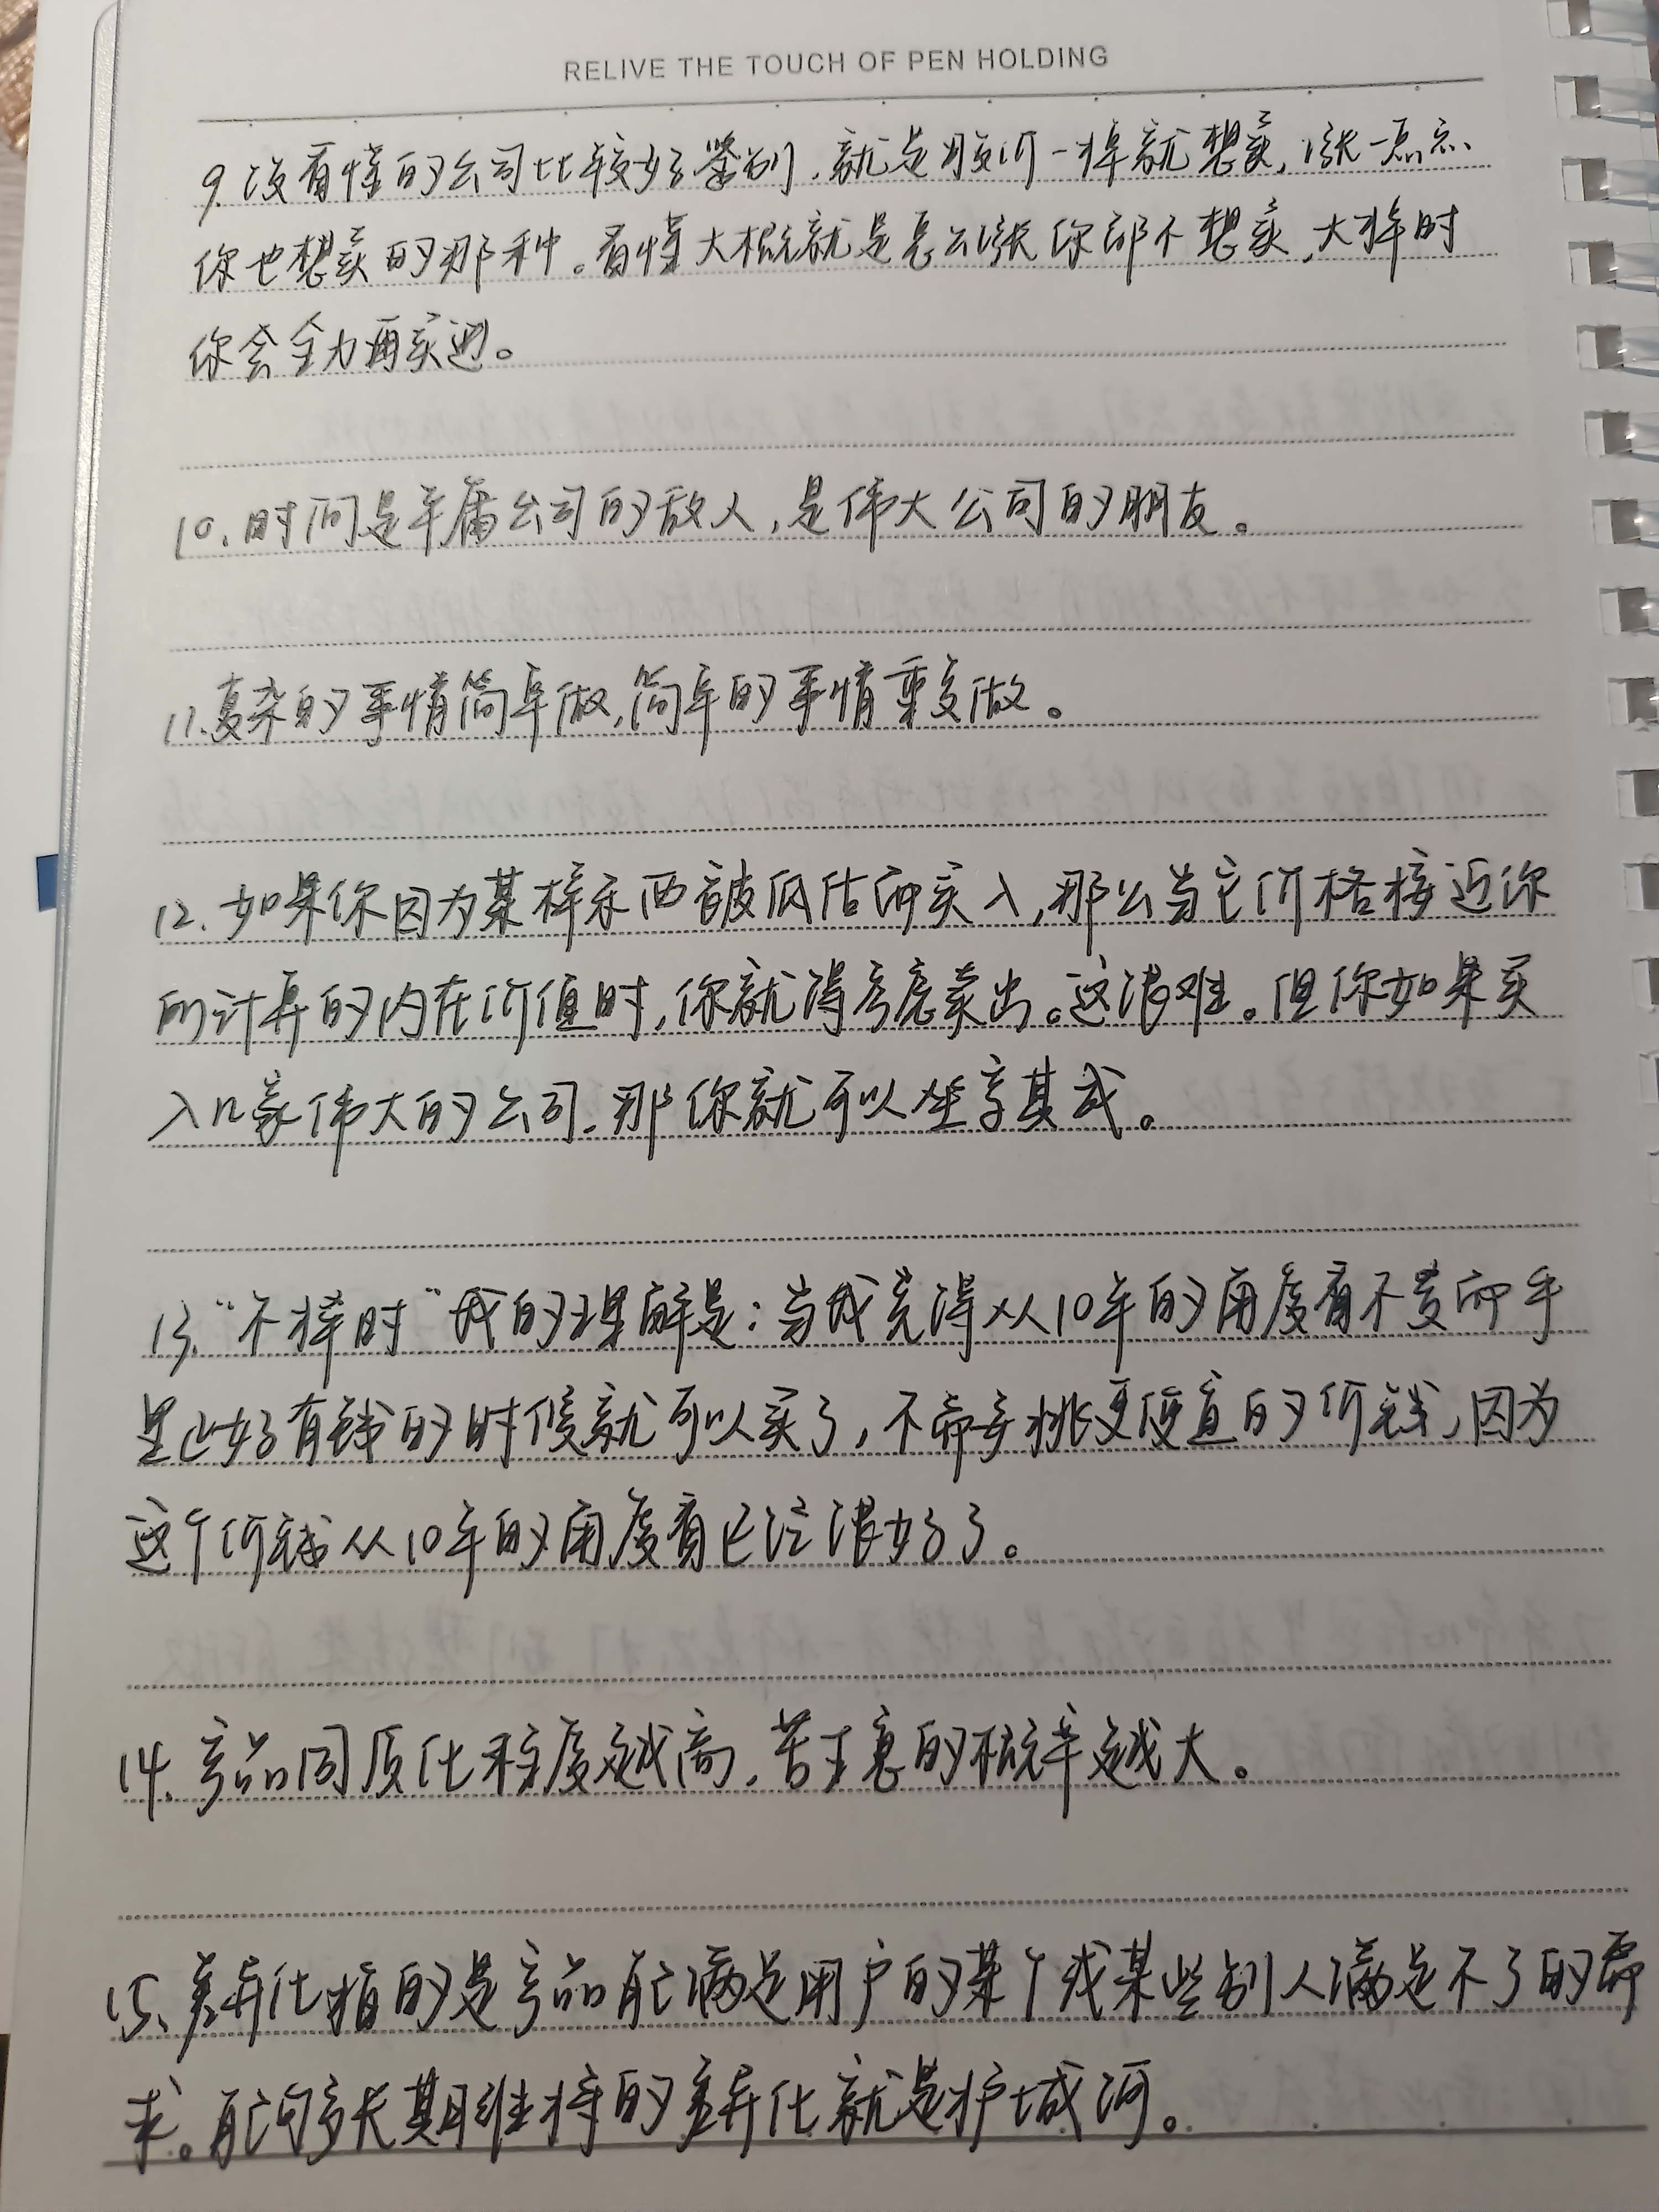 RELIVE THE TOUCH OF PEN HOLDING
9.没看懂的公司比较好鉴别,就是股价一掉就想卖,涨一点点
你也想卖的那种。看懂大概就是怎么涨你都不想卖,大掉时
你会全力再买进。
10.时间是平庸公司的敌人,是伟大公司的朋友。
11.复杂的事情简单做,简单的事情重复做。
12.如果你因为某样东西被低估而买入,那么当它价格接近你
所计算的内在价值时,你就得考虑卖出。这很难。但你如果买
入几家伟大的公司,那你就可以坐享其成。
13.“不择时”我的理解是:当我觉得从10年的角度看不贵而手
里正好有钱的时候就可以买了,不需要挑更便宜的价钱,因为
这个价钱从10年的角度看已经很好了。
14.产品同质化程度越高,苦生意的概率越大。
15、差异化指的是产品能满足用户的某个或某些别人满足不了的需
求。能够长期维持的差异化就是护城河。